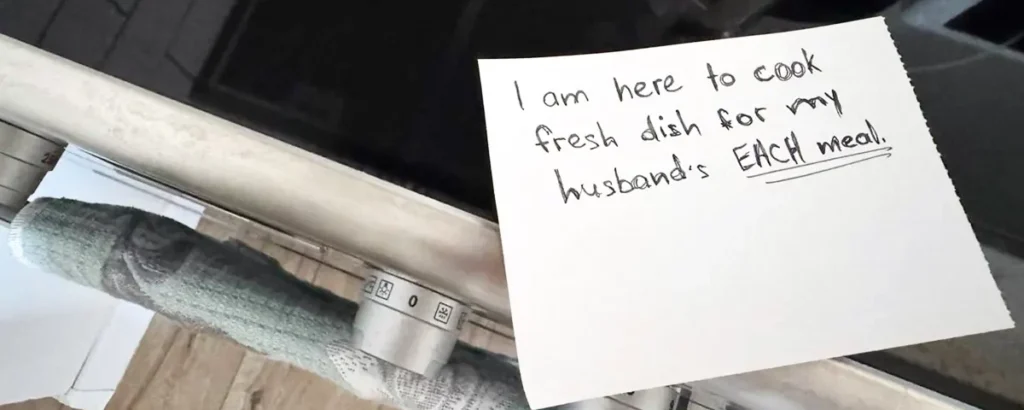 I am here to cook
fresh dish for my
husband's EACH meal.
0